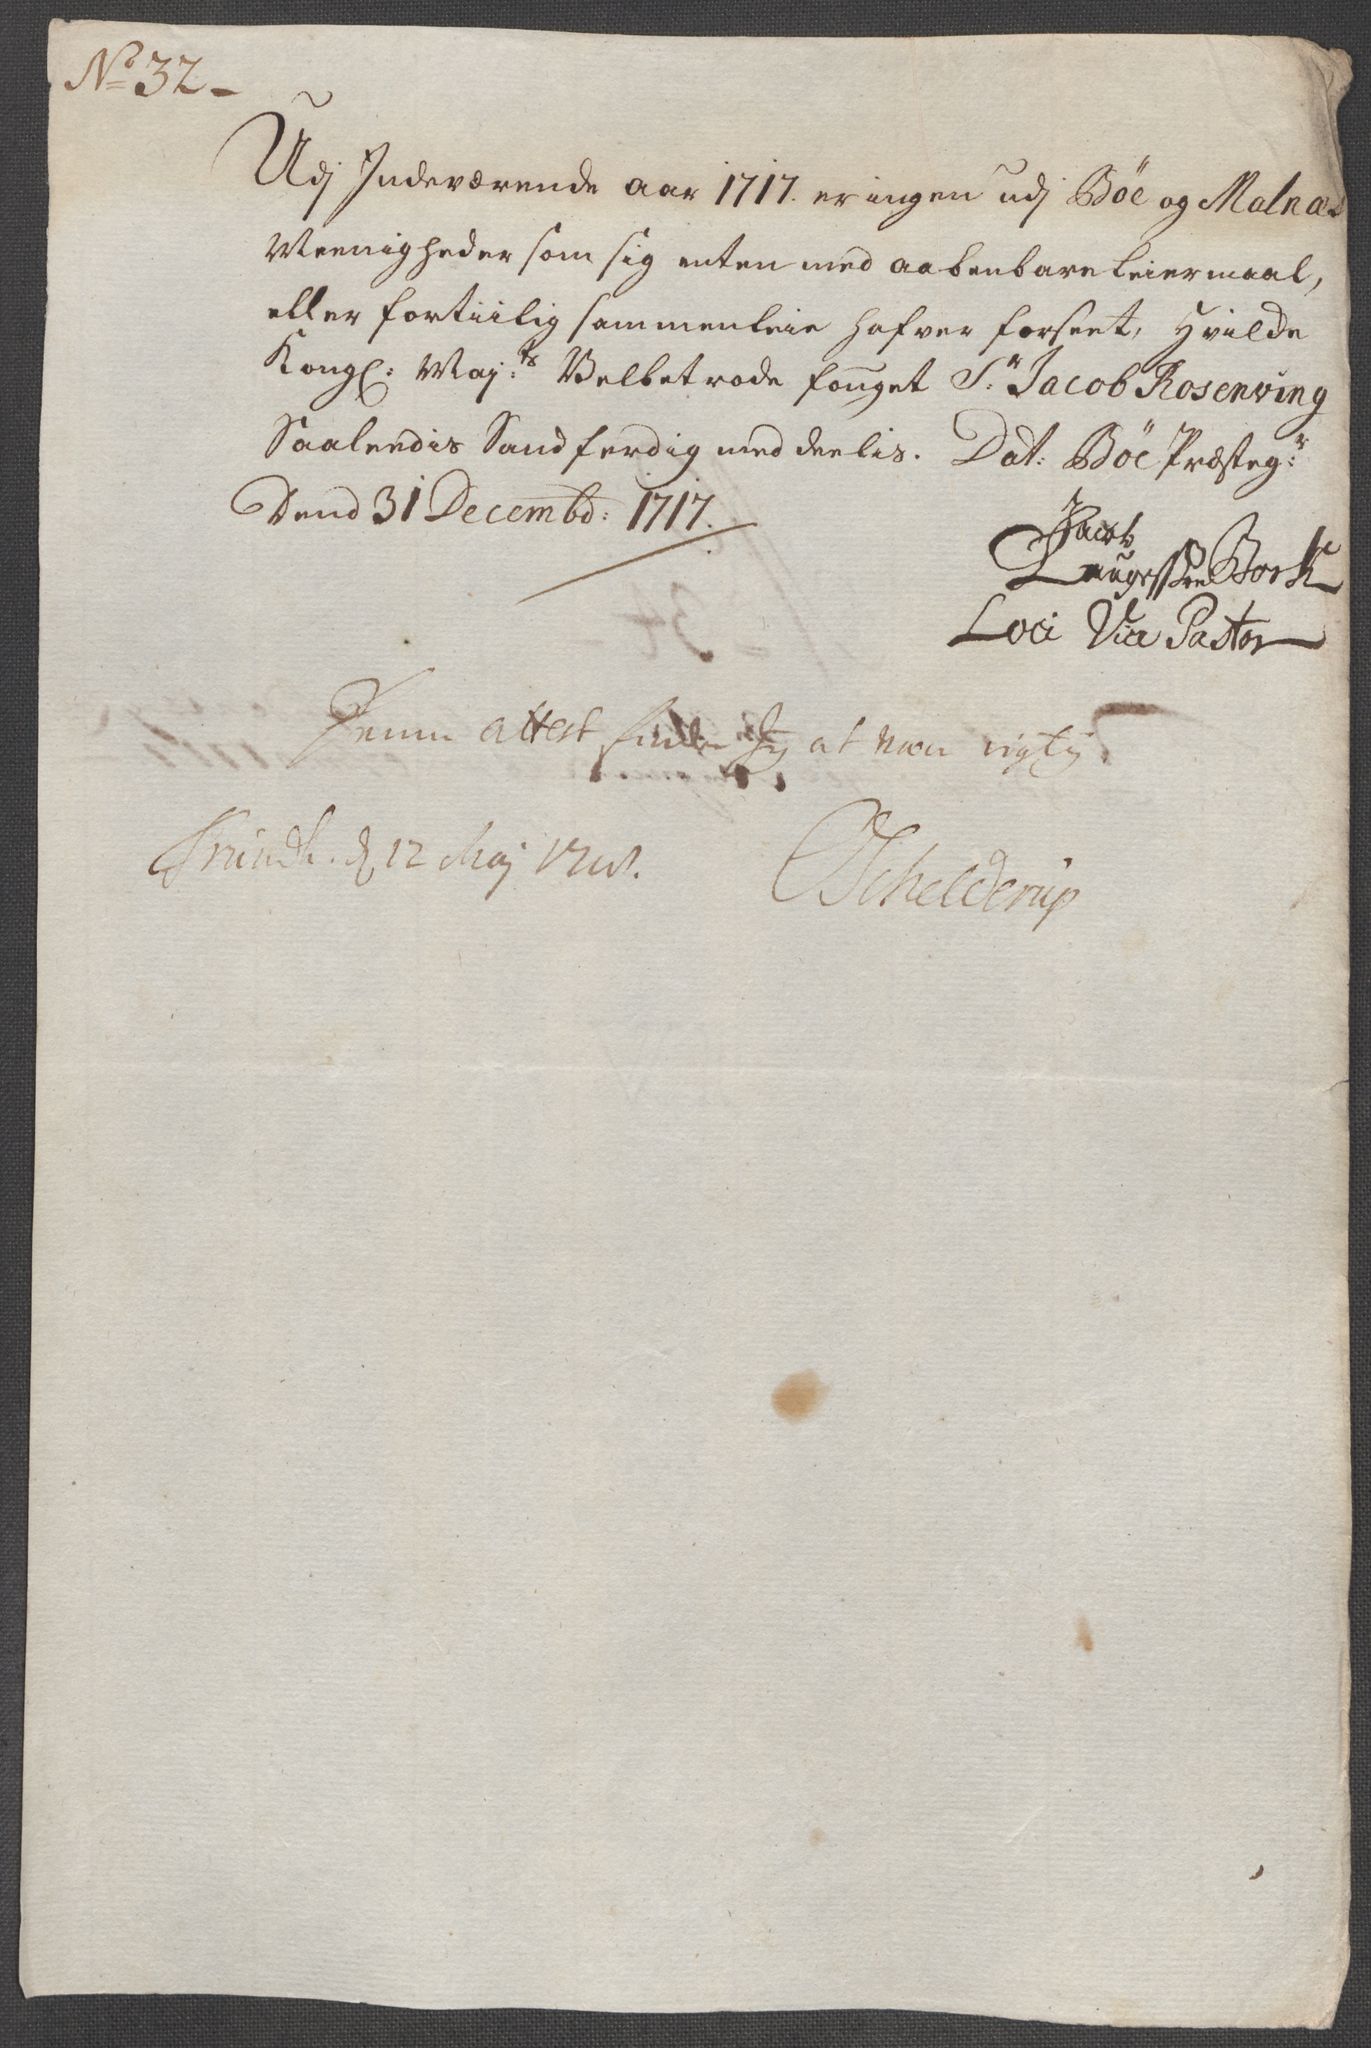 No 32
Udj Indeværende aar 1717. er ingen udj Böe og Malnæs
Meenigheder som sig enten med aabenbare Leiermaal,
eller fortiilig sammenleie hafver forseet, Hvilcke
Kongl: Maj:ts Velbetrode fouget Sr. Jacob Rosenving
Saaleedis Sandferdig meddeelis. Dat: Böe Præsteg:r
Dend 31 Decembd: 1717.
Jacob
Laugessen Bork
Loci Vice Pastor
Denne attest finder Jeg at være rigtig
Trundh. d 12 Maj 1718.
Schelderup